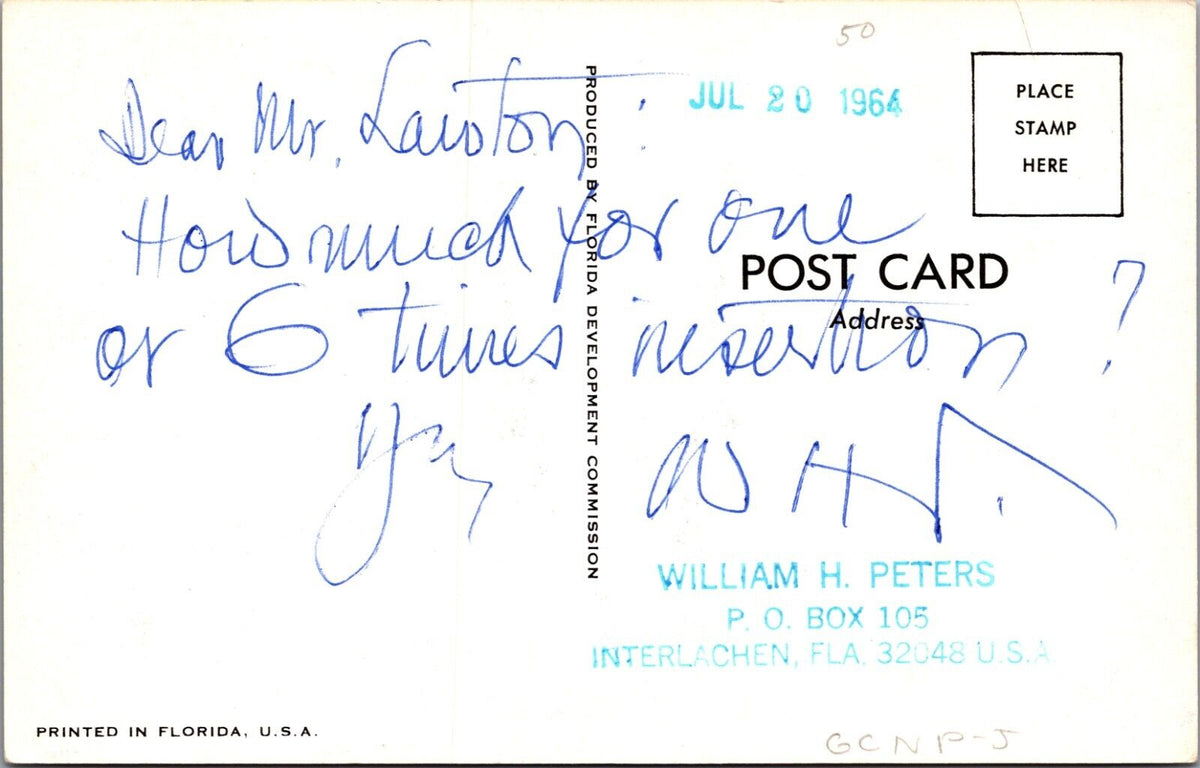 50
JUL 20 1964
PLACE
STAMP
HERE
Dear Mr. Lawton:
How much for one
or 6 times insertion?
POST CARD
Address
PRODUCED BY FLORIDA DEVELOPMENT COMMISSION
WILLIAM H. PETERS
P. O. BOX 105
INTERLACHEN, FLA. 32048 U.S.A.
PRINTED IN FLORIDA, U.S.A.
GCNP-J